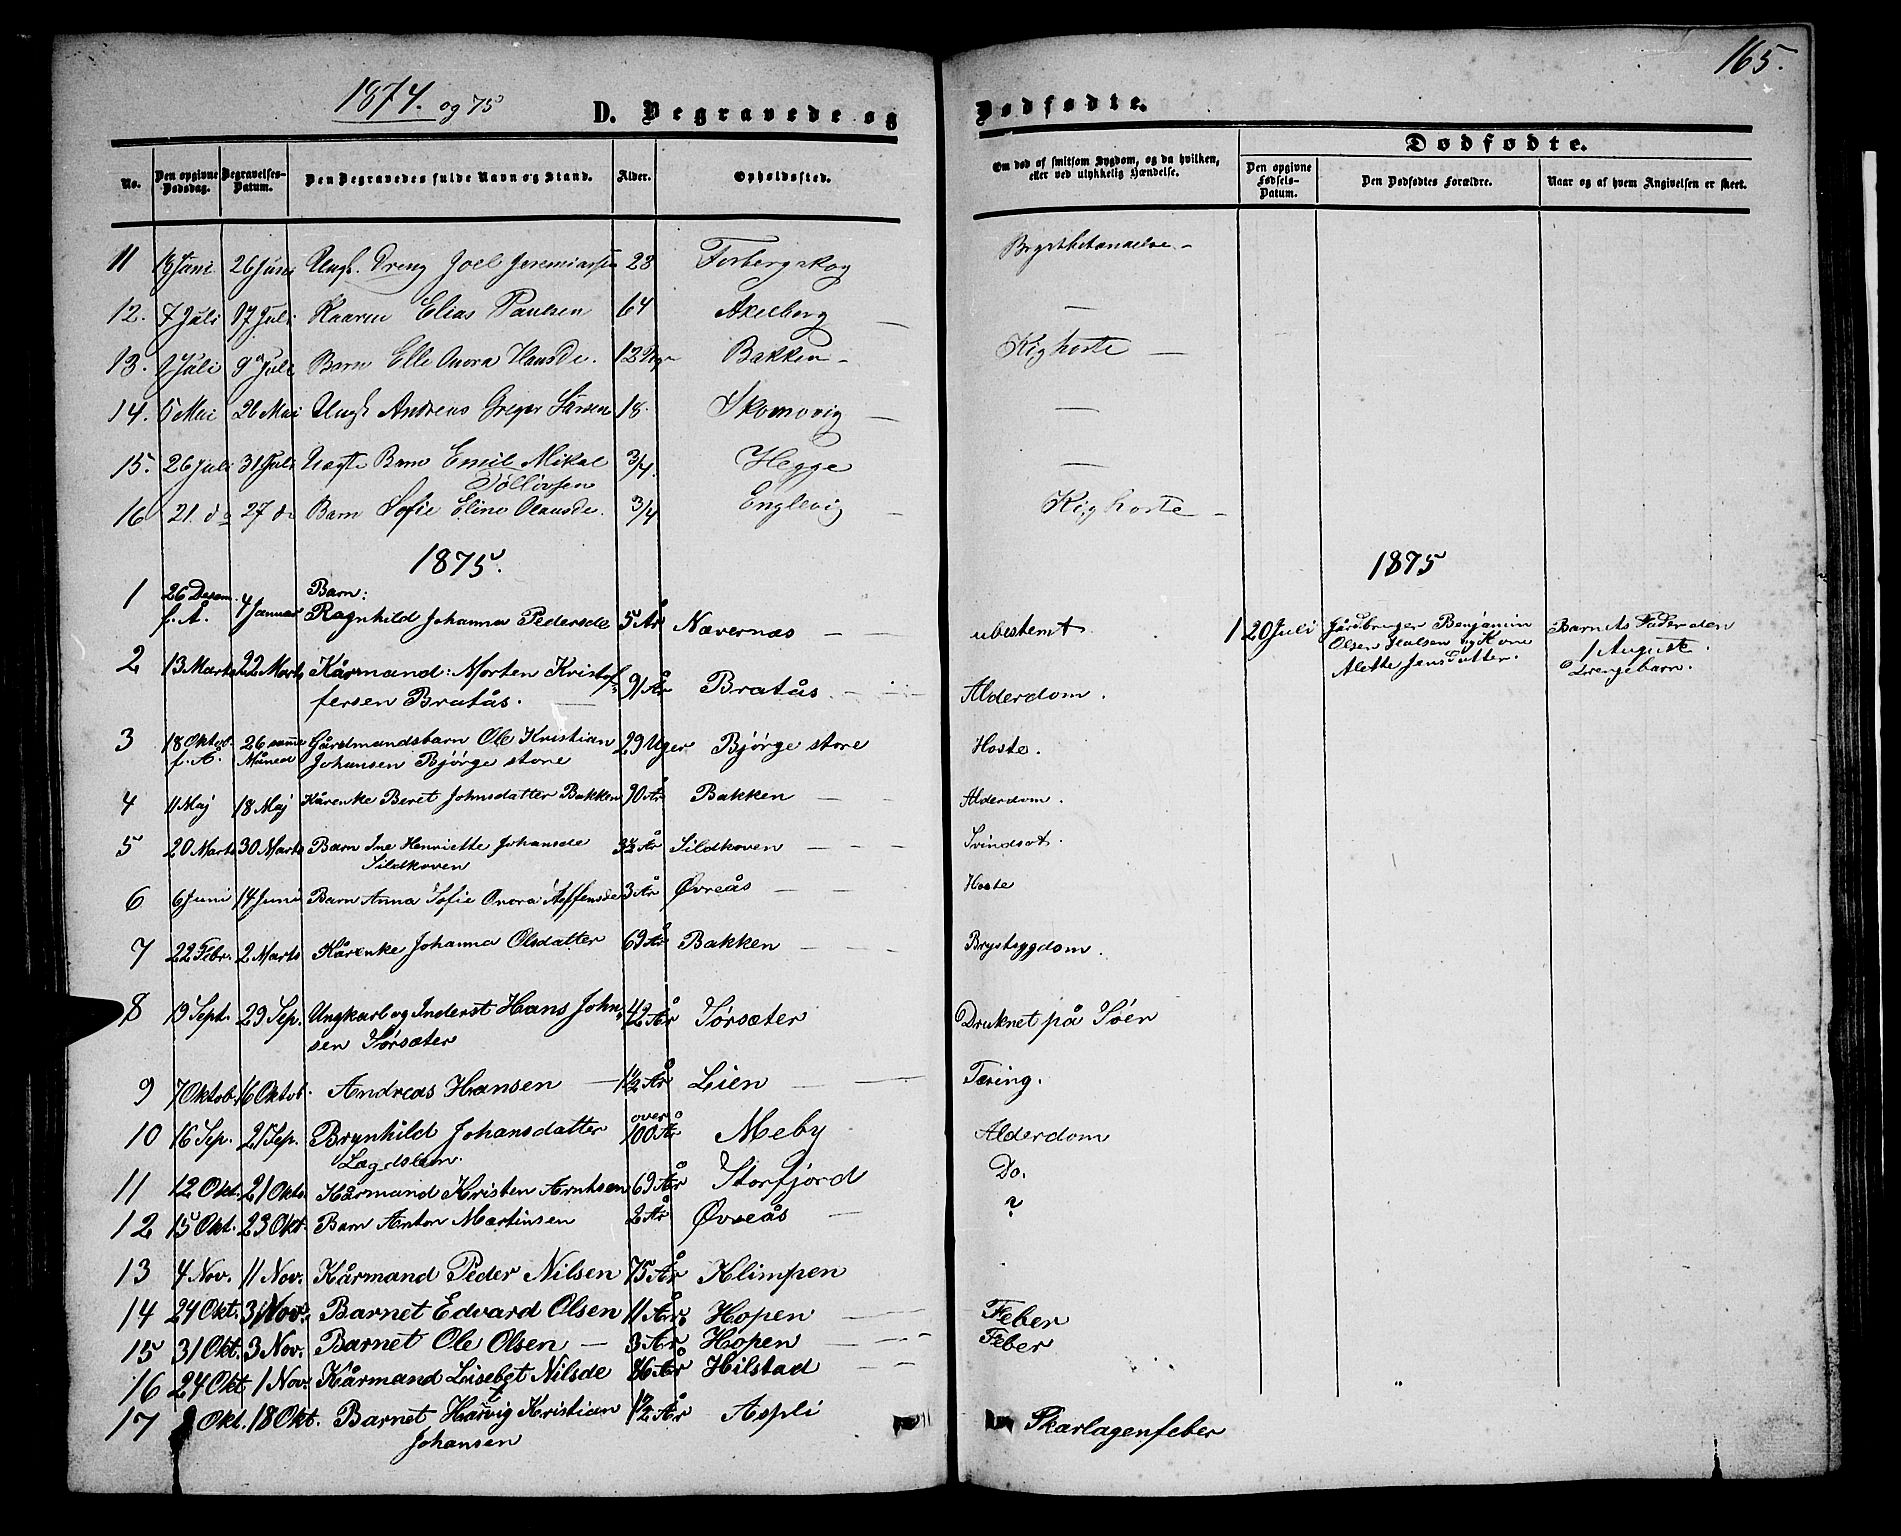 165.
1874. og 75
D. Begravede og Dødfødte.
No. | Den opgivne Dødsdag. | Begravelses-Datum. | Den Begravedes fulde Navn og Stand. | Alder. | Opholdssted. | Om død af smitsom Sygdom, og da hvilken, eller ved ulykkelig Hændelse. | Dødfødte.
Den opgivne Fødsels-Datum. | Den Dødfødtes Forældre. | Naar og af hvem Angivelsen er skeet.
11 | Juni | 26 Juni | Ungk. Dreng Joel Jeremiassen | 23 | Forbergskog | Brystbetændelse -
12. | 7 Juli | 17 Juli | Kaaren Elias Paulsen | 64 | Akelberg — | —
13. | 2 Juli | 9 Juli | Barn Elle Onora Hansde. | 12 | Bakken - | Kighoste —
14. | 5 Mai | 26 Mai | Ungk Andreas Greger Larsen | 18. | Skomovig — | —
15. | 26 Juli | 31 Juli | Uægte Barn Emil Mikal | 3/4. | Hegge | —
Tollivsen
16 | 21. do | 27 do | Barn Sofie Eline Olausde. | 3/4 | Englevig — | Kighoste -
1875. | 1875
1 | 26 Desem. f. Å. | 4 Januar | Barn:
Ragnhild Johanna Pedersde | 5 År | Nævernæs — — | ubestemt | 1 | 20 Juli | Gårdbruger Benjamin | Barnets Fader den
Olsen og Kone | 1 August
Alette Jensdatter. | Drengebarn.
2 | 13 Marts | 22 Marts | Kårmand: Morten Kristof- | 91 År | Bratås. - | Alderdom.
fersen Bratås.
3 | 18 Oktob. f. Å. | 26 samme Måned | Gårdmandsbarn Ole Kristian | 29 Uger | Bjørge store | Hoste.
Johansen Bjørge store
4 | 11 Maj | 18 Maj | Kårenke Beret Johnsdatter Bakken | 90 År | Bakken — — | Alderdom.
5 | 20 Marts | 30 Marts | Barn Ine Henriette Johansde | 3½ År | Sildkoven — — — | Svindsot.
Sildkoven
6 | 6 Juni | 14 Juni | Barn Anna Sofie Onora Steffensde | 3 År | Øvreås — — | Hoste
7 | 22 Febr. | 2 Marts | Kårenke Johanna Olsdatter | 69 År | Bakken — — | Brystsygdom.
8 | 19 Sept. | 29 Sep. | Ungkarl og Inderst Hans John- | 42 År | Sørsæter | Druknet på Søen
sen Sørsæter
9 | 7 Oktob. | 16 Oktob. | Andreas Hansen — | 1½ År | Lien — — | Tæring.
10 | 16 Sep. | 21 Sep. | Brynhild Johansdatter | over 100 År | Meby | Alderdom
Lægdslem.
11 | 12 Okt. | 21 Okt. | Kårmand Kristen Arntsen | 69 År | Storfjord | Do.
12 | 15 Okt. | 23 Okt | Barn Anton Martinsen | 2 År | Øvreås — | ?
13 | 4 Nov. | 11 Nov. | Kårmand Peder Nilsen | 75 År | Klimpen
14 | 24 Okt. | 3 Nov. | Barnet Edvard Olsen | 11 År | Hopen — | Feber
15 | 31 Okt. | 3 Nov. | Barnet Ole Olsen — | 3 År | Hopen — — | Feber
16 | 24 Okt | 1 Nov. | Kårmand Lisebet Nilsde | 86 År | Hilstad — —
17 | Okt. | 18 Okt. | Barnet Harvig Kristian | 1½ År | Aspli | Skarlagenfeber
Johansen